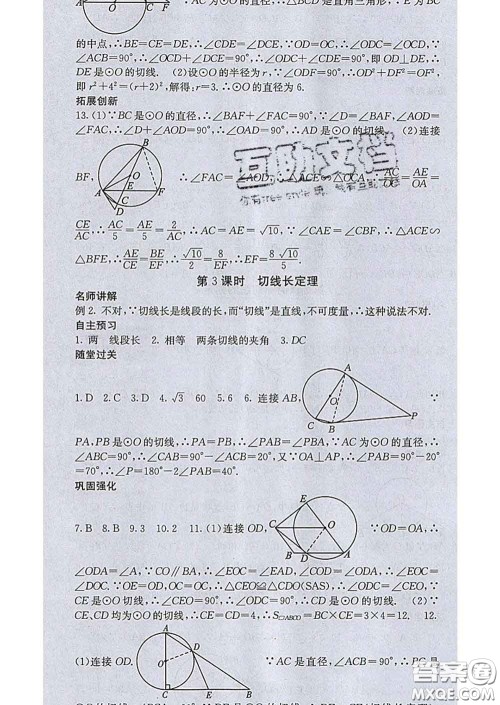 ∵AC为⊙O的直径,∴△BCD是直角三角形,∵E为BC
的中点,∴BE=CE=DE,∴∠CDE=∠DCE,∵OD=OC,∴∠ODC=∠OCD,∵
∠ACB=90°,∴∠OCD+∠DCE=90°,∴∠ODC+∠CDE=90°,即OD⊥DE,∴
DE是⊙O的切线. (2)设⊙O的半径为r,∵∠ODF=90°,∴OD²+DF²=OF²,
即r²+4²=(r+2)²,解得:r=3.∴⊙O的直径为6.
拓展创新
13.(1)∵BC是⊙O的直径,∴∠BAF+∠FAC=90°.∵∠D=∠BAF,∠AOD=
∠FAC,∴∠D+∠AOD=90°,∴∠OAD=90°,∴AD是⊙O的切线. (2)连接
BF, ∴∠FAC=∠AOD,∴△ACE∽△OCA,∴AC/OC=AE/OA=
CE/AC,∴AC/5=AE/5=2/AC,∴AC=AE=√10,∵∠CAE=∠CBF,∴△ACE∽
△BFE,∴AE/BE=CE/EF,∴√10/8=2/EF,∴EF=8√10/5.
第3课时 切线长定理
名师讲解
例2.不对,∵切线长是线段的长,而“切线”是直线,不可度量,∴这种说法不对.
自主预习
1.两 线段长 2.相等 两条切线的夹角 3.DC
随堂过关
1.D 2.C 3.D 4.√3 60 5.6 6.连接AB, ∵
PA,PB是⊙O的切线,∴PA=PB,∴∠PAB=∠PBA,∵AC为⊙O的直径,∴
∠ABC=90°,∴∠CAB=90°-∠ACB=20°,又∵OA⊥AP,∴∠PAB=90°-20°
=70°,∴∠P=180°-2∠PAB=40°.
巩固强化
7.B 8.B 9.3 10.2 11.(1)连接OD, ∵OD=OA,∴
∠ODA=∠A,∵CO∥BA,∴∠EOC=∠EAD,∠COD=∠ODA,∴∠EOC=
∠DOC.∵OE=OD,OC=OC,∴△CEO≌△CDO(SAS),∴∠CEO=∠CDO,∵
CE是⊙O的切线,∴∠CEO=90°,∴∠CDO=90°,∴CD是⊙O的切线. (2)∵
CE、CD均为⊙O的切线,∴CE=CD=4,∴S▱ABCD=BC×CE=3×4=12. 12.
(1)连接OD. ∵AC是直径,∠ACB=90°,∴BC是
互助文档
答案圈
MXQE.COM